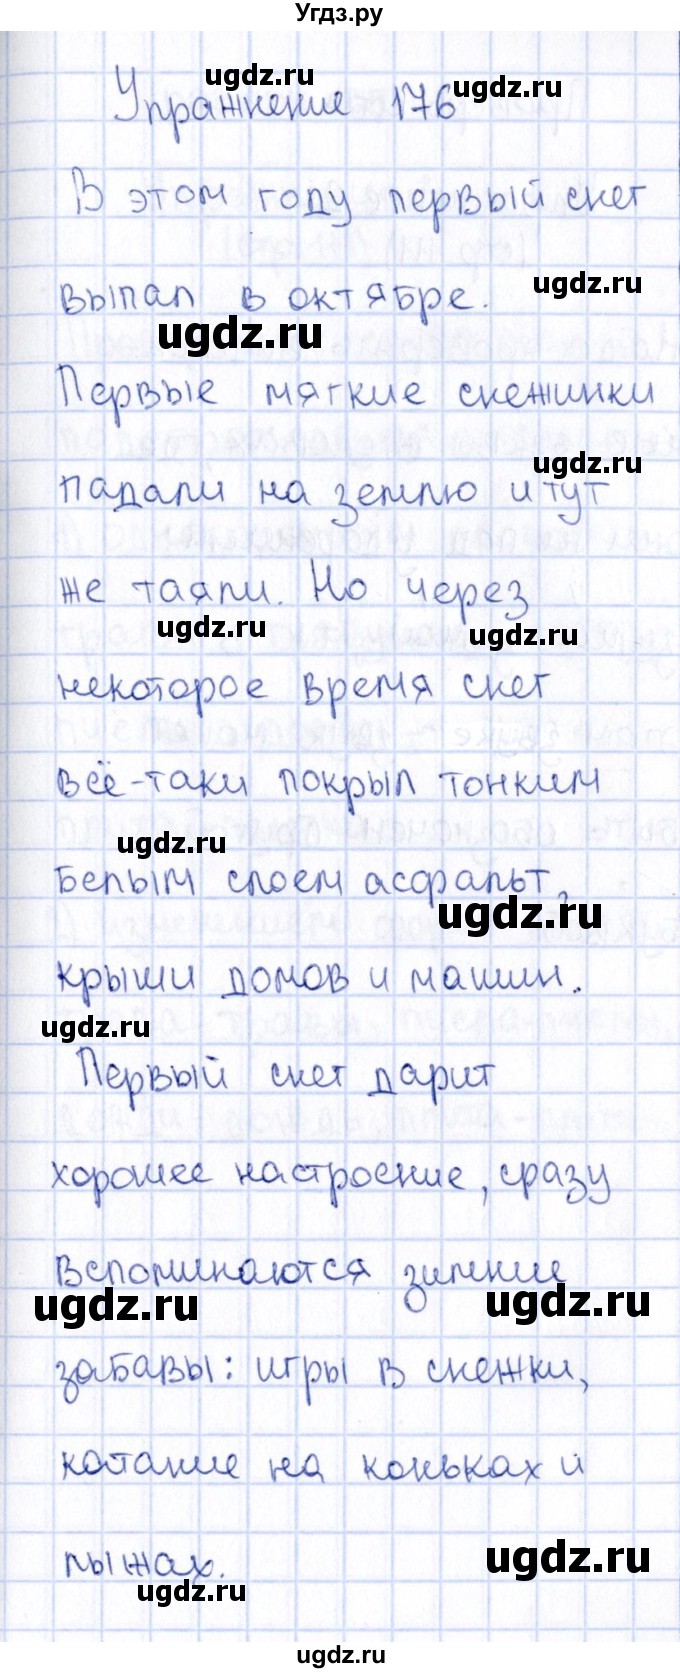 Угдз.ру
Упражнение 176
ugdz.ru
ugdz.ru
В этом году первый снег
выпал в октябре.
ugdz.ru
ugdz.ru
Первые мягкие снежинки
падали на землю и тут
ugdz.ru
же таяли. Но через
ugdz.ru
ugdz.ru
некоторое время снег
всё-таки покрыл тонким
ugdz.ru
белым слоем асфальт,
ugdz.ru
крыши домов и машин.
ugdz.ru
Первый снег дарит
хорошее настроение, сразу
вспоминаются зимние
ugdz.ru
ugdz.ru
забавы: игры в снежки,
катание на коньках и
лыжах.
ugdz.ru
ugdz.ru
ugdz.ru